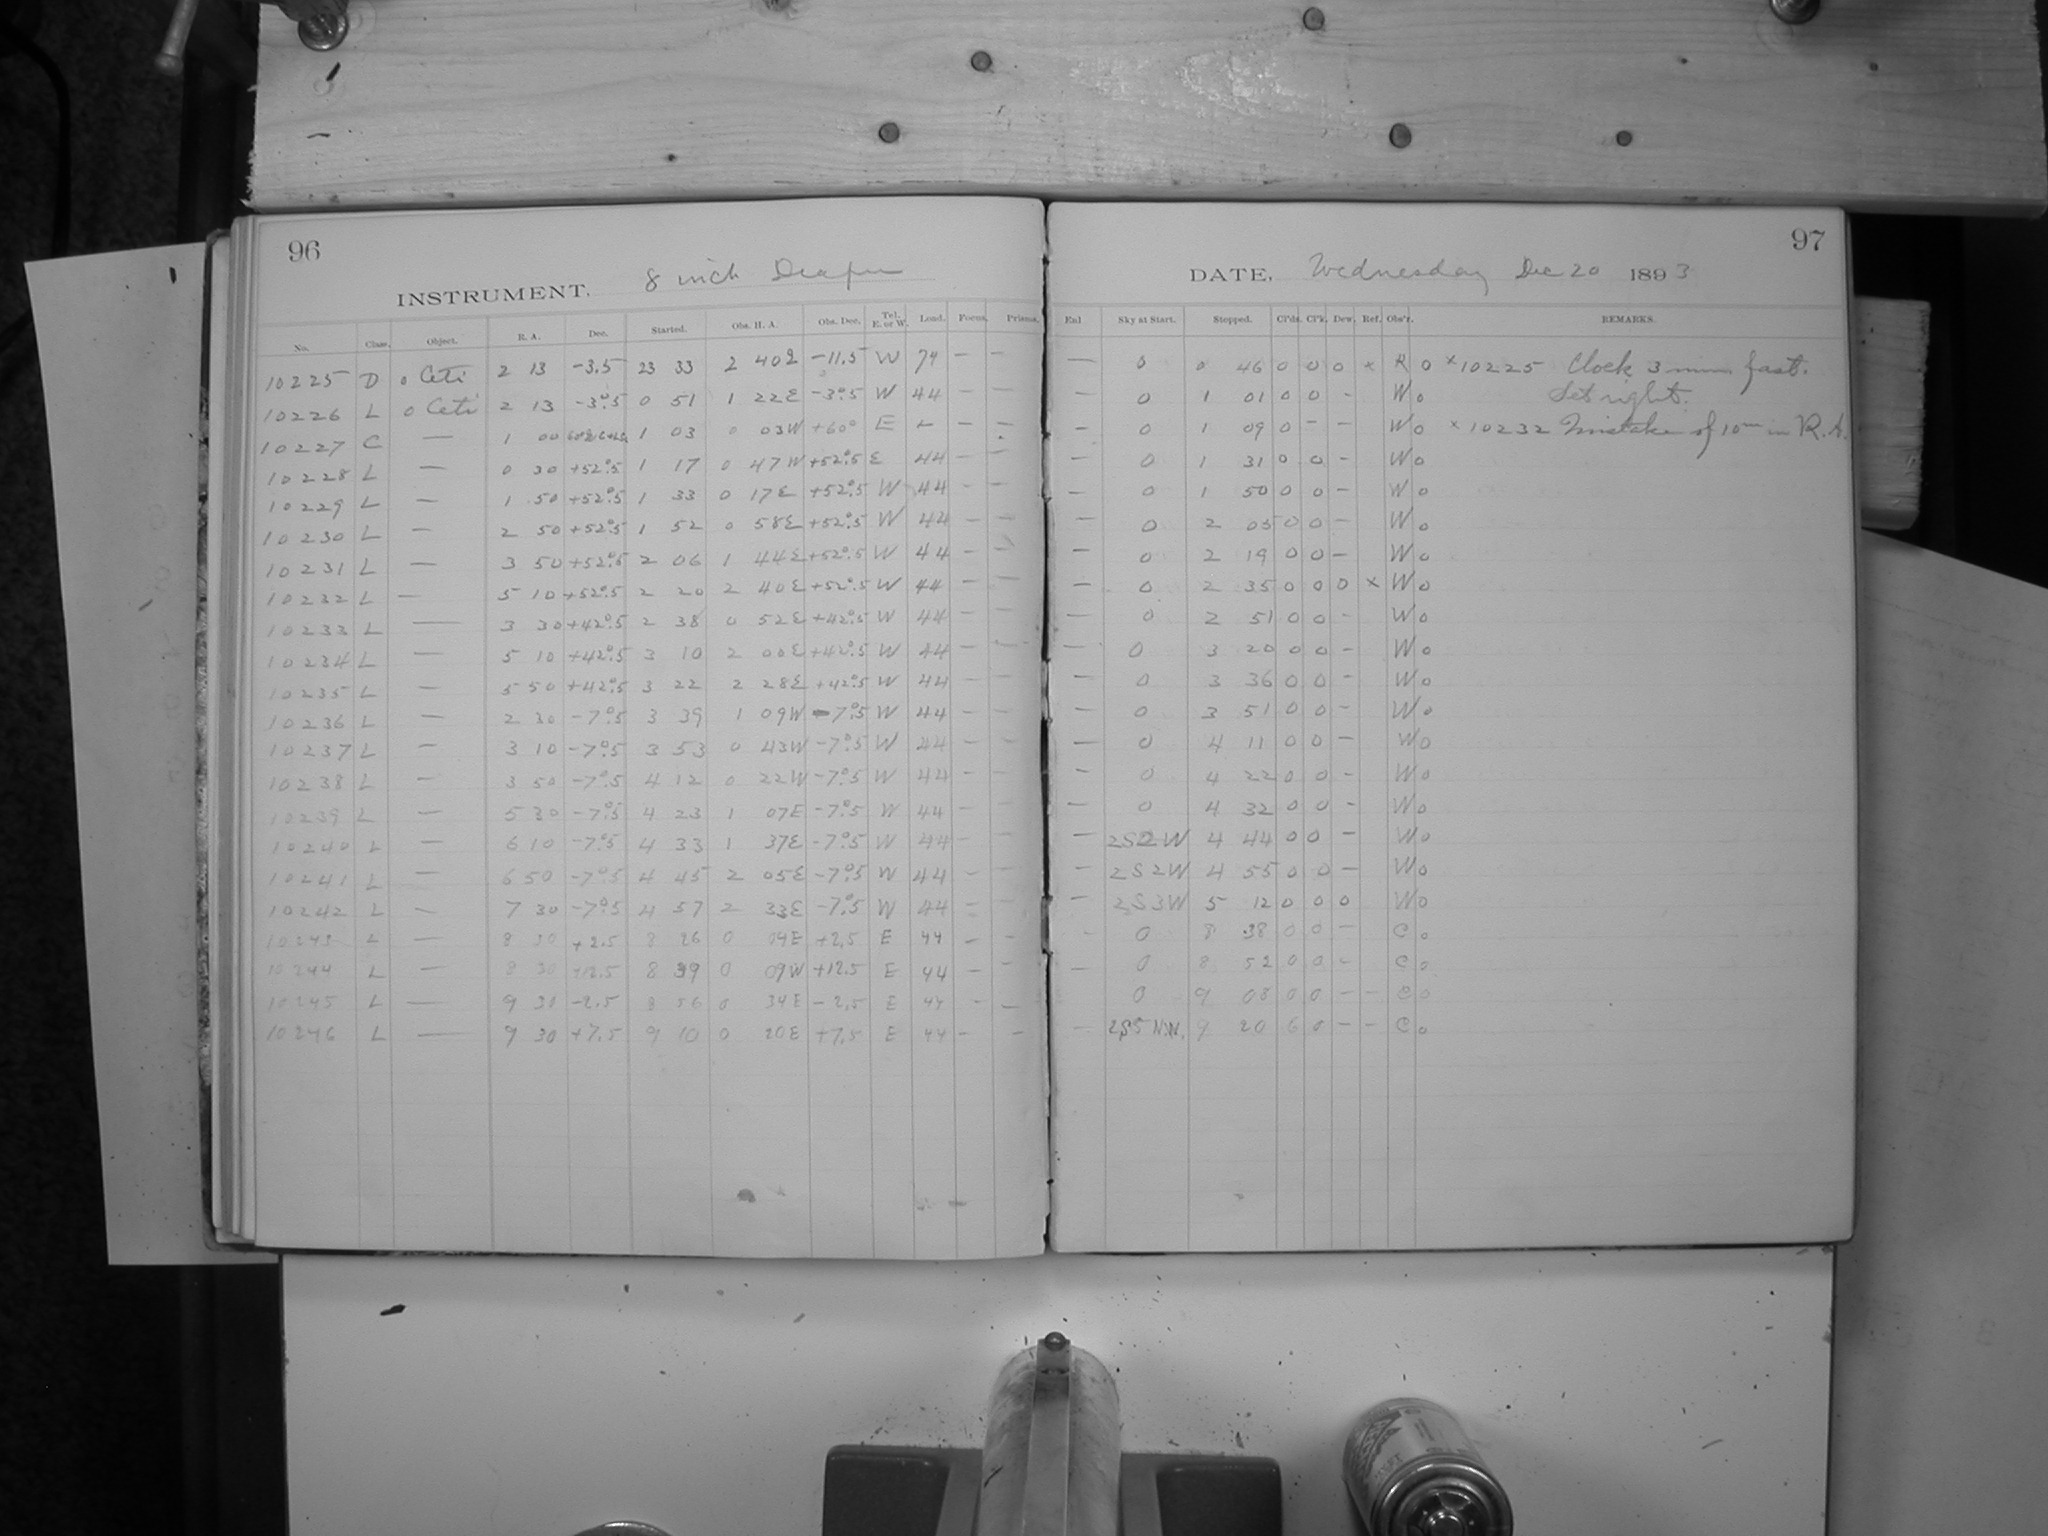 96
INSTRUMENT. 8 inch Draper
No. Class. Object. R. A. Dec. Started. Obs. H. A. Obs. Dec. Tel. E. or W. Lond. Focus. Prisms.
10225 D o Ceti 2 13 -3.5 23 33 2 40E -11.5 W 74 - -
10226 L o Ceti 2 13 -3°.5 0 51 1 22E -3°.5 W 44 - -
10227 C — 1 00 1 03 0 03W +60° E - - -
10228 L — 0 30 +52°.5 1 17 0 47W +52°.5 E 44 - -
10229 L — 1 50 +52°.5 1 33 0 17E +52°.5 W 44 - -
10230 L — 2 50 +52°.5 1 52 0 58E +52°.5 W 44 - -
10231 L — 3 50 +52°.5 2 06 1 44E +52°.5 W 44 - -
10232 L — 5 10 +52°.5 2 20 2 40E +52°.5 W 44 - -
10233 L — 3 30 +42°.5 2 38 0 52E +42°.5 W 44 - -
10234 L — 5 10 +42°.5 3 10 2 00E +42°.5 W 44 - -
10235 L — 5 50 +42°.5 3 22 2 28E +42°.5 W 44 - -
10236 L — 2 30 -7°.5 3 39 1 09W -7°.5 W 44 - -
10237 L — 3 10 -7°.5 3 53 0 43W -7°.5 W 44 - -
10238 L — 3 50 -7°.5 4 12 0 22W -7°.5 W 44 - -
10239 L — 5 30 -7°.5 4 23 1 07E -7°.5 W 44 - -
10240 L — 6 10 -7°.5 4 33 1 37E -7°.5 W 44 - -
10241 L — 6 50 -7°.5 4 45 2 05E -7°.5 W 44 - -
10242 L — 7 30 -7°.5 4 57 2 33E -7°.5 W 44 - -
10243 L — 8 30 +2.5 8 26 0 04E +2.5 E 44 - -
10244 L — 8 30 +12.5 8 39 0 09W +12.5 E 44 - -
10245 L — 9 30 -2.5 8 56 0 34E -2.5 E 44 - -
10246 L — 9 30 +7.5 9 10 0 20E +7.5 E 44 - -
97
DATE, Wednesday Dec 20 1893
Enl Sky at Start. Stopped. Cl'ds. Cl'k. Dew. Ref. Obs'r. REMARKS.
— 0 0 46 0 0 0 x R o x10225 Clock 3 min fast.
— 0 1 01 0 0 - W o Set right.
— 0 1 09 0 - - W o x 10232 Mistake of 10m in R. A.
— 0 1 31 0 0 - W o
— 0 1 50 0 0 - W o
— 0 2 05 0 0 - W o
— 0 2 19 0 0 - W o
— 0 2 35 0 0 0 x W o
— 0 2 51 0 0 - W o
— 0 3 20 0 0 - W o
— 0 3 36 0 0 - W o
— 0 3 51 0 0 - W o
— 0 4 11 0 0 - W o
— 0 4 22 0 0 - W o
— 0 4 32 0 0 - W o
— 2S2W 4 44 0 0 - W o
— 2S2W 4 55 0 0 - W o
— 2S3W 5 12 0 0 0 W o
- 0 8 38 0 0 - C o
— 0 8 52 0 0 - C o
0 9 08 0 0 - - C o
— 2S5 N.W. 9 20 6 0 - - C o